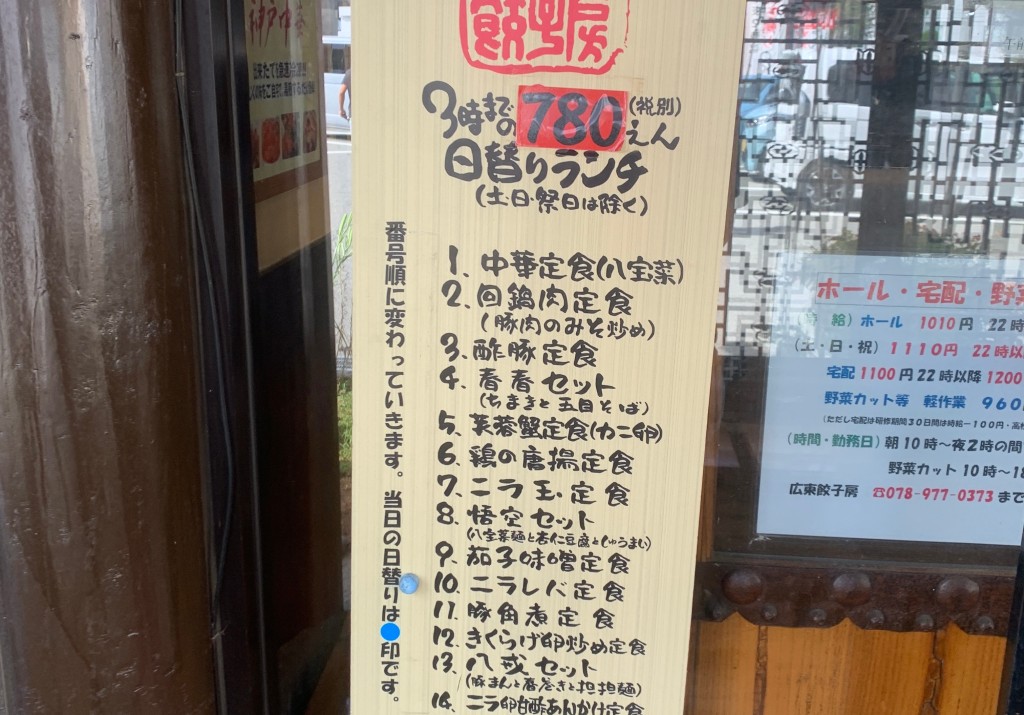 餃子房
3時までの780えん(税別)
日替りランチ
(土・日・祭日は除く)
番号順に変わっていきます。当日の日替りは●印です。
1. 中華定食(八宝菜)
2. 回鍋肉定食
(豚肉のみそ炒め)
3. 酢豚定食
4. 春春セット
(ちまきと五目そば)
5. 芙蓉蟹定食(カニ卵)
6. 鶏の唐揚定食
7. ニラ玉定食
8. 悟空セット
(八宝菜麺と杏仁豆腐としゅうまい)
9. 茄子味噌定食
10. ニラレバ定食
11. 豚角煮定食
12. きくらげ卵炒め定食
13. 八戒セット
(豚まんと春巻きと担担麺)
14. ニラ卵甘酢あんかけ定食
ホール・宅配・野菜
給)ホール 1010円 22時
(土・日・祝)1110円 22時以
宅配1100円22時以降1200
野菜カット等 軽作業 960
(ただし宅配は研修期間30日間は時給ー100円・高校
(時間・勤務日)朝10時〜夜2時の間
野菜カット10時〜18
広東餃子房 ☎078-977-0373まで